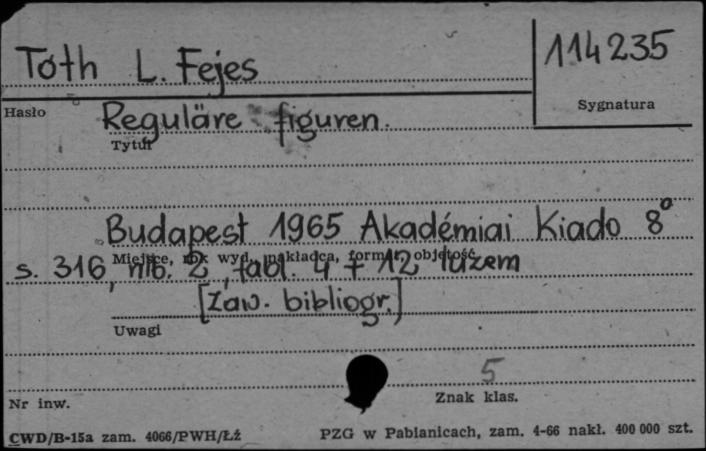 Toth L. Fejes
114235
Hasło
Sygnatura
Reguläre figuren.
Tytuł
Budapest 1965 Akadémiai Kiado 8°
Miejsce, rok wyd., nakładca, format, objętość
s. 316, nlb. 2, tabl. 4 + 12 luzem
[Zaw. bibliogr.]
Uwagi
5
Nr inw.
Znak klas.
CWD/B-15a zam. 4066/PWH/Łź
PZG w Pabianicach, zam. 4-66 nakł. 400 000 szt.